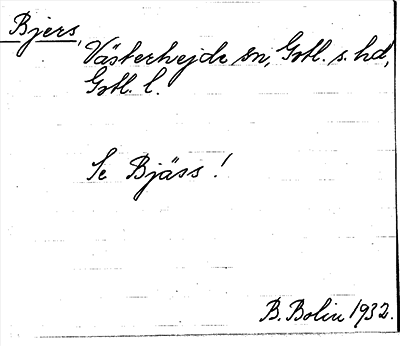 Bjers,
Västerhejde sn, Gotl. s. hd,
Gotl. l.
Se Bjäss!
B. Bolin 1932.